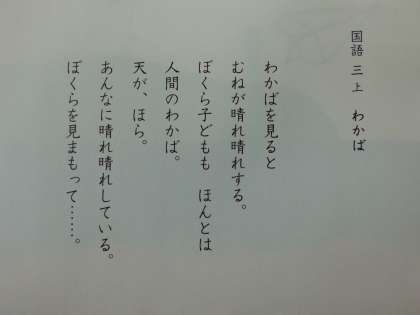 国語 三上 わかば
わかばを見ると
むねが晴れ晴れする。
ぼくら子どもも ほんとは
人間のわかば。
天が、ほら。
あんなに晴れ晴れしている。
ぼくらを見まもって……。